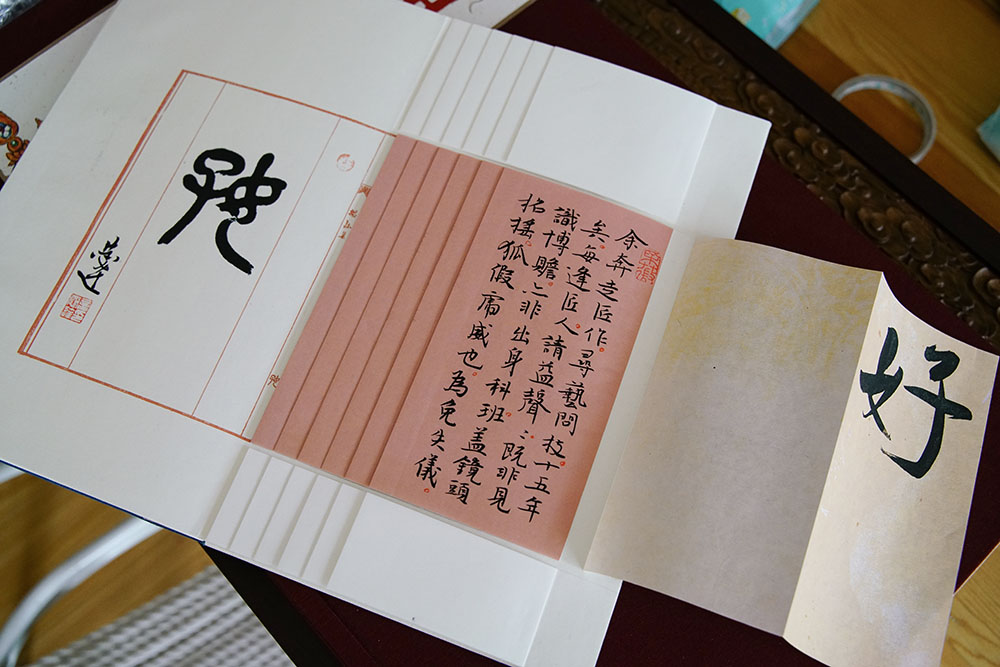 好
余奔走匠作。尋藝問技。十五年
矣每逢匠人。請益聲。〻既非見
識博贍。非出身科班。蓋鏡頭
招搖。狐假虎威也。為免失儀。